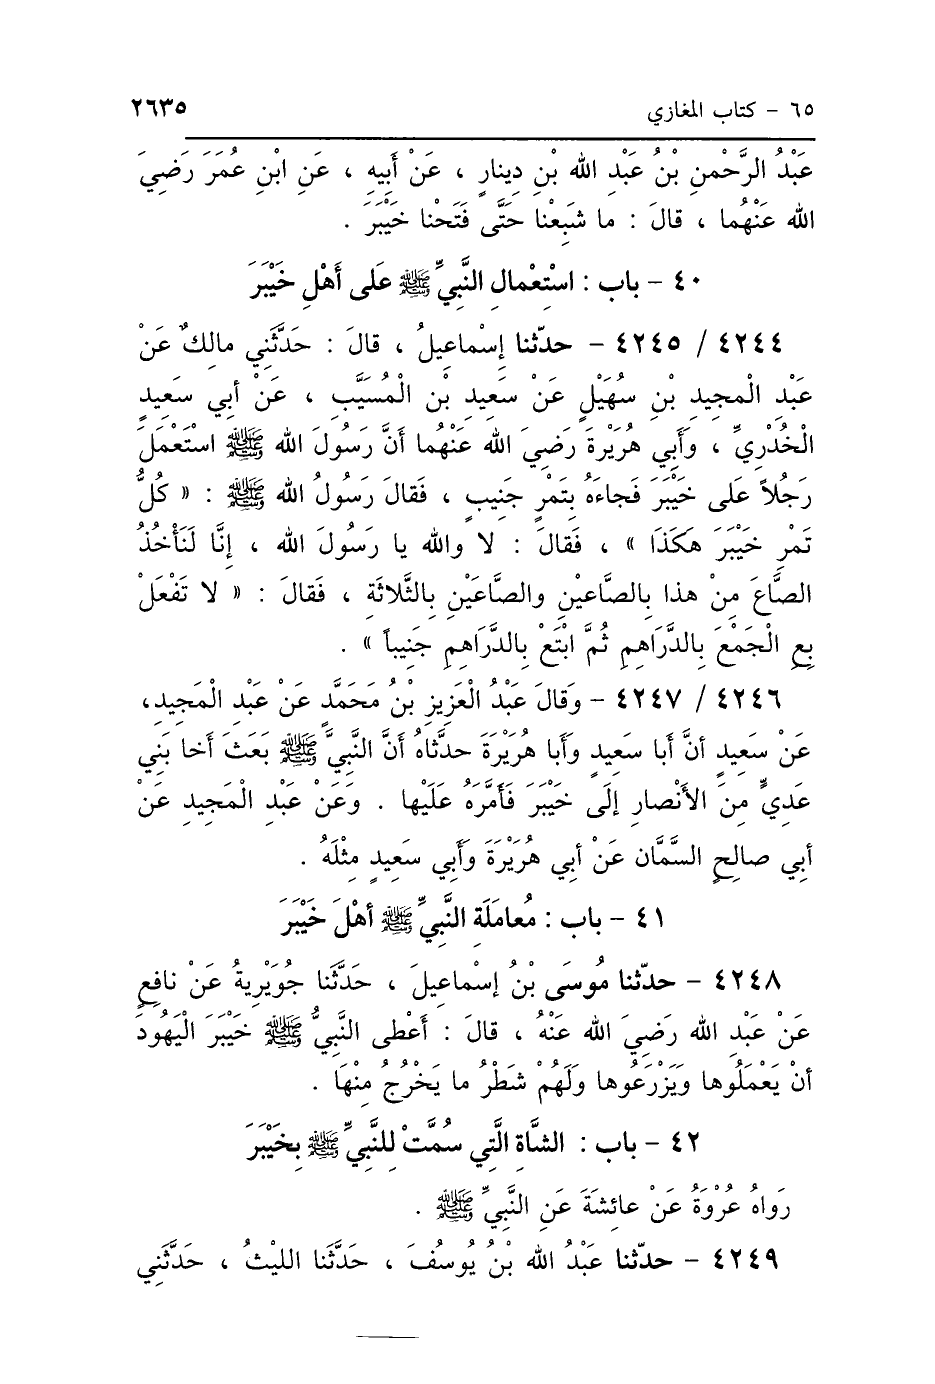 ٦٥ - كتاب المغازي ٢٦٣٥
عَبْدُ الرَّحْمنِ بْنُ عَبْدِ الله بْنِ دِينارٍ ، عَنْ أَبِيهِ ، عَنِ ابْنِ عُمَرَ رَضِيَ
الله عَنْهُما ، قالَ : ما شَبِعْنا حَتَّى فَتَحْنا خَيْبَرَ .
٤٠ - باب : اسْتِعْمالِ النَّبِيِّ ﷺ عَلى أَهْلِ خَيْبَرَ
٤٢٤٤ / ٤٢٤٥ - حدّثنا إِسْماعِيلُ ، قالَ : حَدَّثَنِي مالكٌ عَنْ
عَبْدِ الْمجِيدِ بْنِ سُهَيْلٍ عَنْ سَعِيدِ بْنِ الْمُسَيَّبِ ، عَنْ أبي سَعِيدٍ
الْخُدْرِيِّ ، وَأَبِي هُرَيْرةَ رَضِيَ الله عَنْهُما أَنَّ رَسُولَ الله ﷺ اسْتَعْمَلَ
رَجُلاً عَلى خَيْبَرَ فَجاءَهُ بِتَمْرٍ جَنِيبٍ ، فَقالَ رَسُولُ الله ﷺ : « كُلُّ
تَمْرِ خَيْبَرَ هكَذَا » ، فَقالَ : لا والله يا رَسُولَ الله ، إِنَّا لَنَأْخُذُ
الصَّاعَ مِنْ هذا بِالصَّاعَيْنِ والصَّاعَيْنِ بِالثَّلاثَةِ ، فَقالَ : « لا تَفْعَلْ
بِعِ الْجَمْعَ بِالدَّرَاهِمِ ثُمَّ ابْتَعْ بِالدَّرَاهِمِ جَنِيباً » .
٤٢٤٦ / ٤٢٤٧ - وَقالَ عَبْدُ الْعَزِيزِ بْنُ مُحَمَّدٍ عَنْ عَبْدِ الْمَجِيدِ،
عَنْ سَعِيدٍ أنَّ أبا سَعِيدٍ وَأَبا هُرَيْرَةَ حدَّثاهُ أَنَّ النَّبِيَّ ﷺ بَعَثَ أخا بَنِي
عَدِيٍّ مِنَ الأَنْصارِ إِلَى خَيْبَرَ فَأَمَّرَهُ عَلَيْها . وَعَنْ عَبْدِ الْمَجِيدِ عَنْ
أبي صالِحٍ السَّمَّان عَنْ أبي هُرَيْرَةَ وَأَبي سَعِيدٍ مِثْلَهُ .
٤١ - باب : مُعامَلَةِ النَّبِيِّ ﷺ أهْلَ خَيْبَرَ
٤٢٤٨ - حدّثنا مُوسَى بْنُ إسْماعِيلَ ، حَدَّثَنا جُوَيْرِيةُ عَنْ نافِعٍ
عَنْ عَبْدِ الله رَضِيَ الله عَنْهُ ، قالَ : أَعْطى النَّبِيُّ ﷺ خَيْبَرَ الْيَهُودَ
أنْ يَعْمَلُوها وَيَزْرَعُوها وَلَهُمْ شَطْرُ ما يَخْرُجُ مِنْهَا .
٤٢ - باب : الشَّاةِ الَّتِي سُمَّتْ لِلنَّبِيِّ ﷺ بِخَيْبَرَ
رَواهُ عُرْوَةُ عَنْ عائِشَةَ عَنِ النَّبِيِّ ﷺ .
٤٢٤٩ - حدّثنا عَبْدُ الله بْنُ يُوسُفَ ، حَدَّثَنا الليْثُ ، حَدَّثَنِي